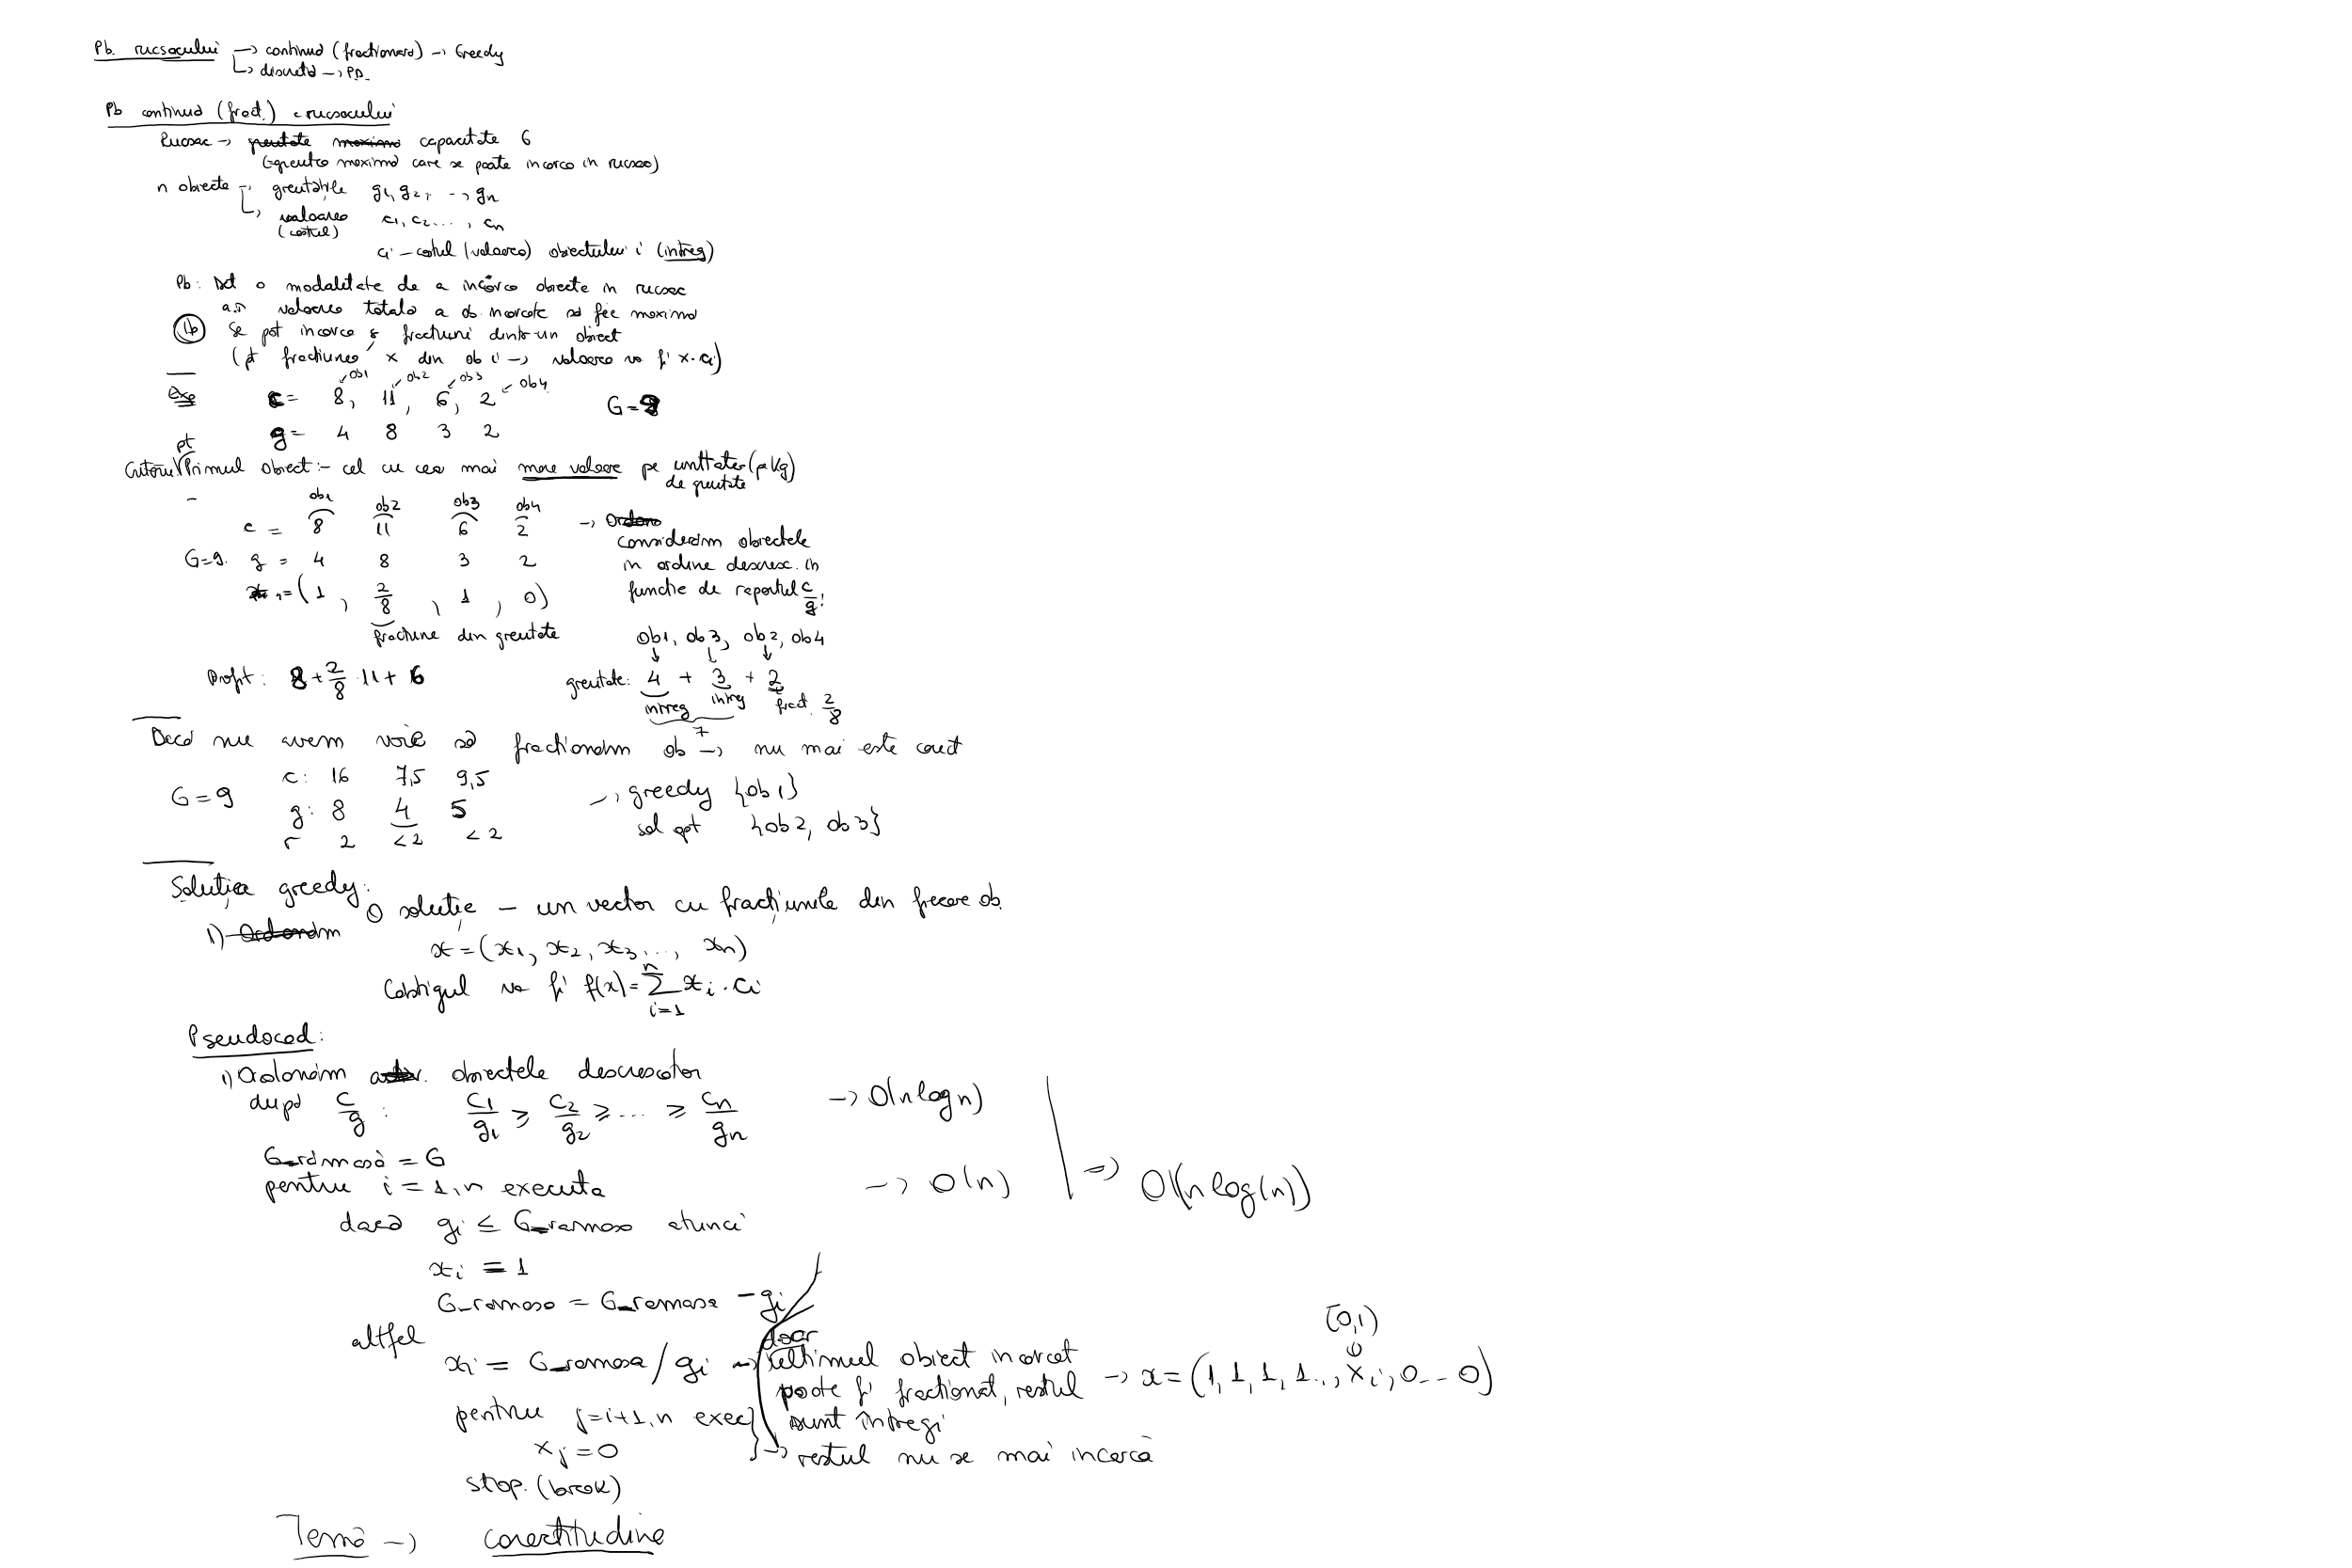 Pb. rucsacului → continuă (fracționară) → Greedy
↳ discretă → P.D.
Pb continuă (fracț.) a rucsacului
Rucsac → greutate maximă capacitate G
(=greutea maximă care se poate încărca în rucsac)
n obiecte → greutățile g1, g2, ..., gn
↳ valoarea c1, c2..., cn
(costul)
ci – costul (valoarea) obiectului i (întreg)
Pb: Det o modalitate de a încărca obiecte în rucsac
a.î valoarea totală a ob. încărcate să fie maximă
Se pot încărca și fracțiuni dintr-un obiect
(pt fracțiunea x din ob i → valoarea va fi x·ci)
ob1 ob2 ob3 ob4
Exp c = 8, 11, 6, 2 G=9
g = 4 8 3 2
pt
Criteriu Primul obiect :– cel cu cea mai mare valoare pe unitatea (pe kg)
de greutate
ob1 ob2 ob3 ob4
c = 8 11 6 2 → Ordonă
considerăm obiectele
G=9. g = 4 8 3 2 în ordine descresc. în
x = (1, 2/8, 1, 0) funcție de raportul c/g:
fracțiune din greutate ob1, ob3, ob2, ob4
Profit: 8 + 2/8 · 11 + 6 greutate: 4 + 3 + 2
întreg întreg fract. 2/8
7
Dacă nu avem voie să fracționăm ob → nu mai este corect
c: 16 7,5 9,5
G=9 → greedy {ob1}
g: 8 4 5
sol opt {ob2, ob3}
r 2 <2 <2
Soluția greedy:
O soluție – un vector cu fracțiunile din fiecare ob.
1) Ordonăm
x = (x1, x2, x3, ..., xn)
Câștigul va fi f(x) = Σ_{i=1}^{n} xi · ci
Pseudocod:
1) Ordonăm obiectele descrescător
după c/g : c1/g1 ≥ c2/g2 ≥ ... ≥ cn/gn → O(n log n)
G_rămasă = G
pentru i = 1,n executa → O(n) ⇒ O(n log(n))
dacă gi ≤ G_ramasa atunci
xi = 1
G_ramasa = G_ramasa – gi
altfel (0,1)
doar
xi = G_ramasa / gi → ultimul obiect incarcat
poate fi fractionat, restul → x = (1, 1, 1, 1.., xi, 0 -- 0)
pentru j=i+1,n exec sunt întregi
xj = 0 → restul nu se mai incarcă
stop. (break)
Temă → corectitudine